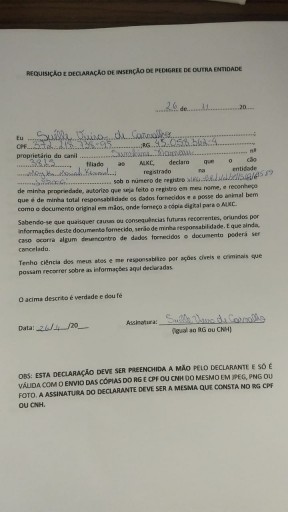 REQUISIÇÃO E DECLARAÇÃO DE INSERÇÃO DE PEDIGREE DE OUTRA ENTIDADE
26 de 11 20
Eu Suille de Carvalho
CPF RG
proprietário do canil nº
filiado ao ALKC, declaro que o cão
registrado na entidade
sob o número de registro
de minha propriedade, autorizo que seja feito o registro em meu nome, e reconheço
que é de minha total responsabilidade os dados fornecidos e a posse do animal bem
como o documento original em mãos, onde forneço a cópia digital para o ALKC.
Sabendo-se que quaisquer causas ou consequências futuras recorrentes, oriundos por
informações deste documento fornecido, serão de minha responsabilidade. E que ainda,
caso ocorra algum desencontro de dados fornecidos o documento poderá ser
cancelado.
Tenho ciência dos meus atos e me responsabilizo por ações cíveis e criminais que
possam recorrer sobre as informações aqui declaradas.
O acima descrito é verdade e dou fé
Data: /20 Assinatura: de Carvalho
(Igual ao RG ou CNH)
OBS: ESTA DECLARAÇÃO DEVE SER PREENCHIDA A MÃO PELO DECLARANTE E SÓ É
VÁLIDA COM O ENVIO DAS CÓPIAS DO RG E CPF OU CNH DO MESMO EM JPEG, PNG OU
FOTO. A ASSINATURA DO DECLARANTE DEVE SER A MESMA QUE CONSTA NO RG CPF
OU CNH.